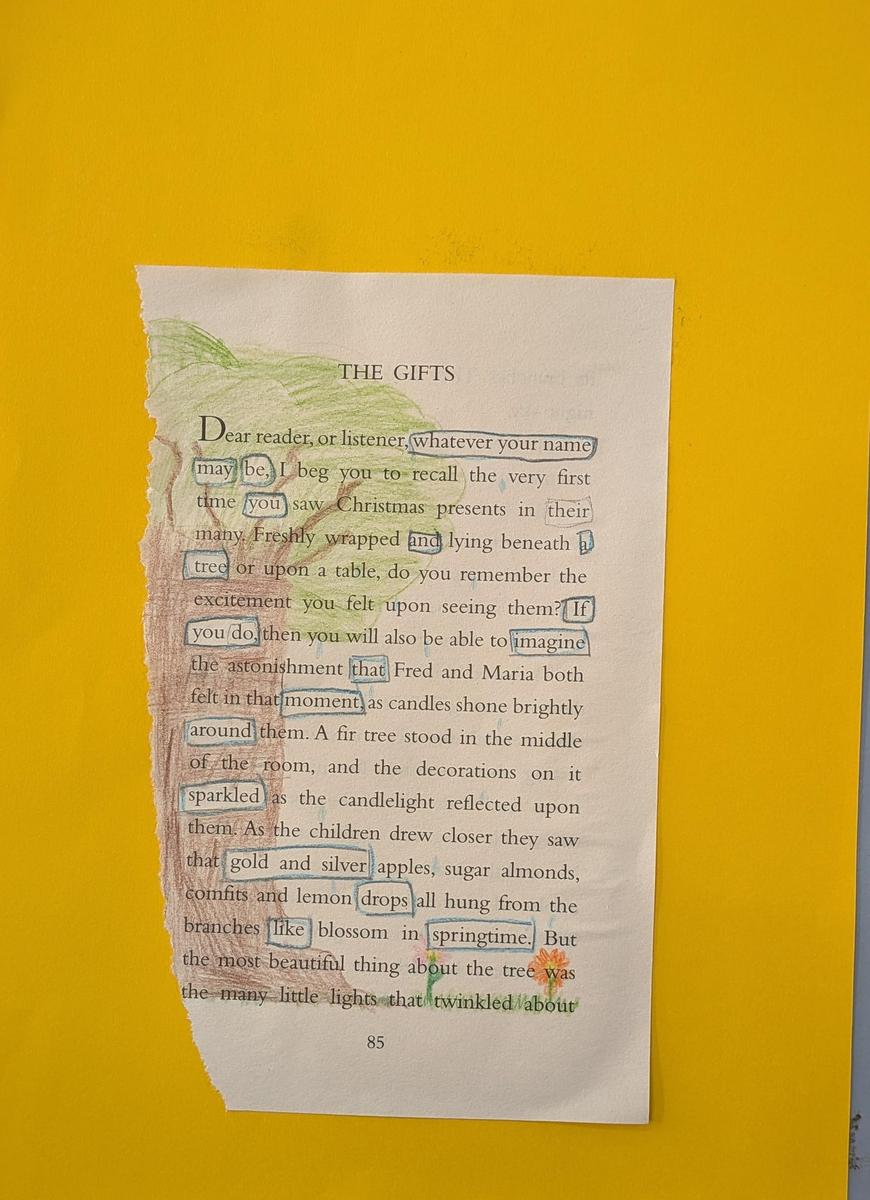 THE GIFTS
Dear reader, or listener, whatever your name
may be, I beg you to recall the very first
time you saw Christmas presents in their
many. Freshly wrapped and lying beneath a
tree or upon a table, do you remember the
excitement you felt upon seeing them? If
you do, then you will also be able to imagine
the astonishment that Fred and Maria both
felt in that moment, as candles shone brightly
around them. A fir tree stood in the middle
of the room, and the decorations on it
sparkled as the candlelight reflected upon
them. As the children drew closer they saw
that gold and silver apples, sugar almonds,
comfits and lemon drops all hung from the
branches like blossom in springtime. But
the most beautiful thing about the tree was
the many little lights that twinkled about
85